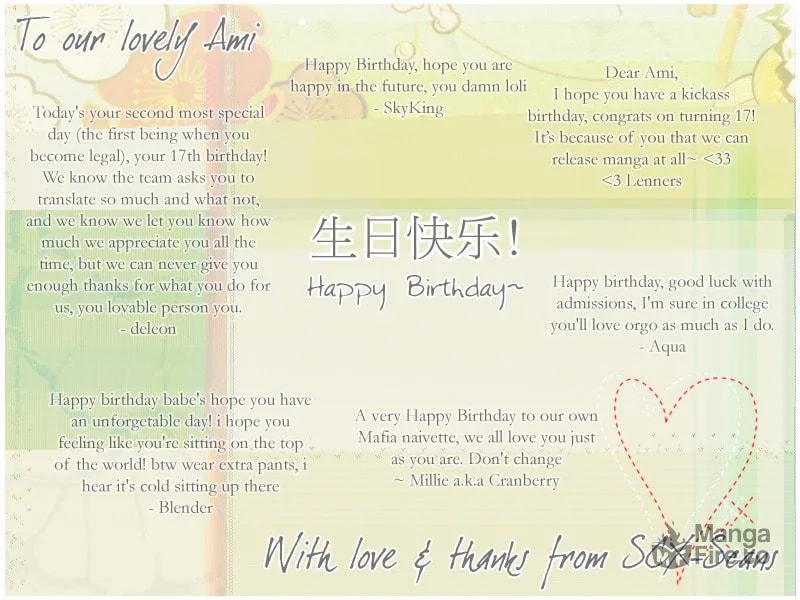 To our lovely Ami
Happy Birthday, hope you are
happy in the future, you damn loli
- SkyKing
Dear Ami,
I hope you have a kickass
birthday, congrats on turning 17!
It's because of you that we can
release manga at all~ <33
<3 Lenners
Today's your second most special
day (the first being when you
become legal), your 17th birthday!
We know the team asks you to
translate so much and what not,
and we know we let you know how
much we appreciate you all the
time, but we can never give you
enough thanks for what you do for
us, you lovable person you.
- deleon
生日快乐!
Happy Birthday~
Happy birthday, good luck with
admissions, I'm sure in college
you'll love orgo as much as I do.
- Aqua
Happy birthday babe's hope you have
an unforgetable day! i hope you
feeling like you're sitting on the top
of the world! btw wear extra pants, i
hear it's cold sitting up there
- Blender
A very Happy Birthday to our own
Mafia naivette, we all love you just
as you are. Don't change
~ Millie a.k.a Cranberry
With love & thanks from SCX-Scans
Manga
Fire.to